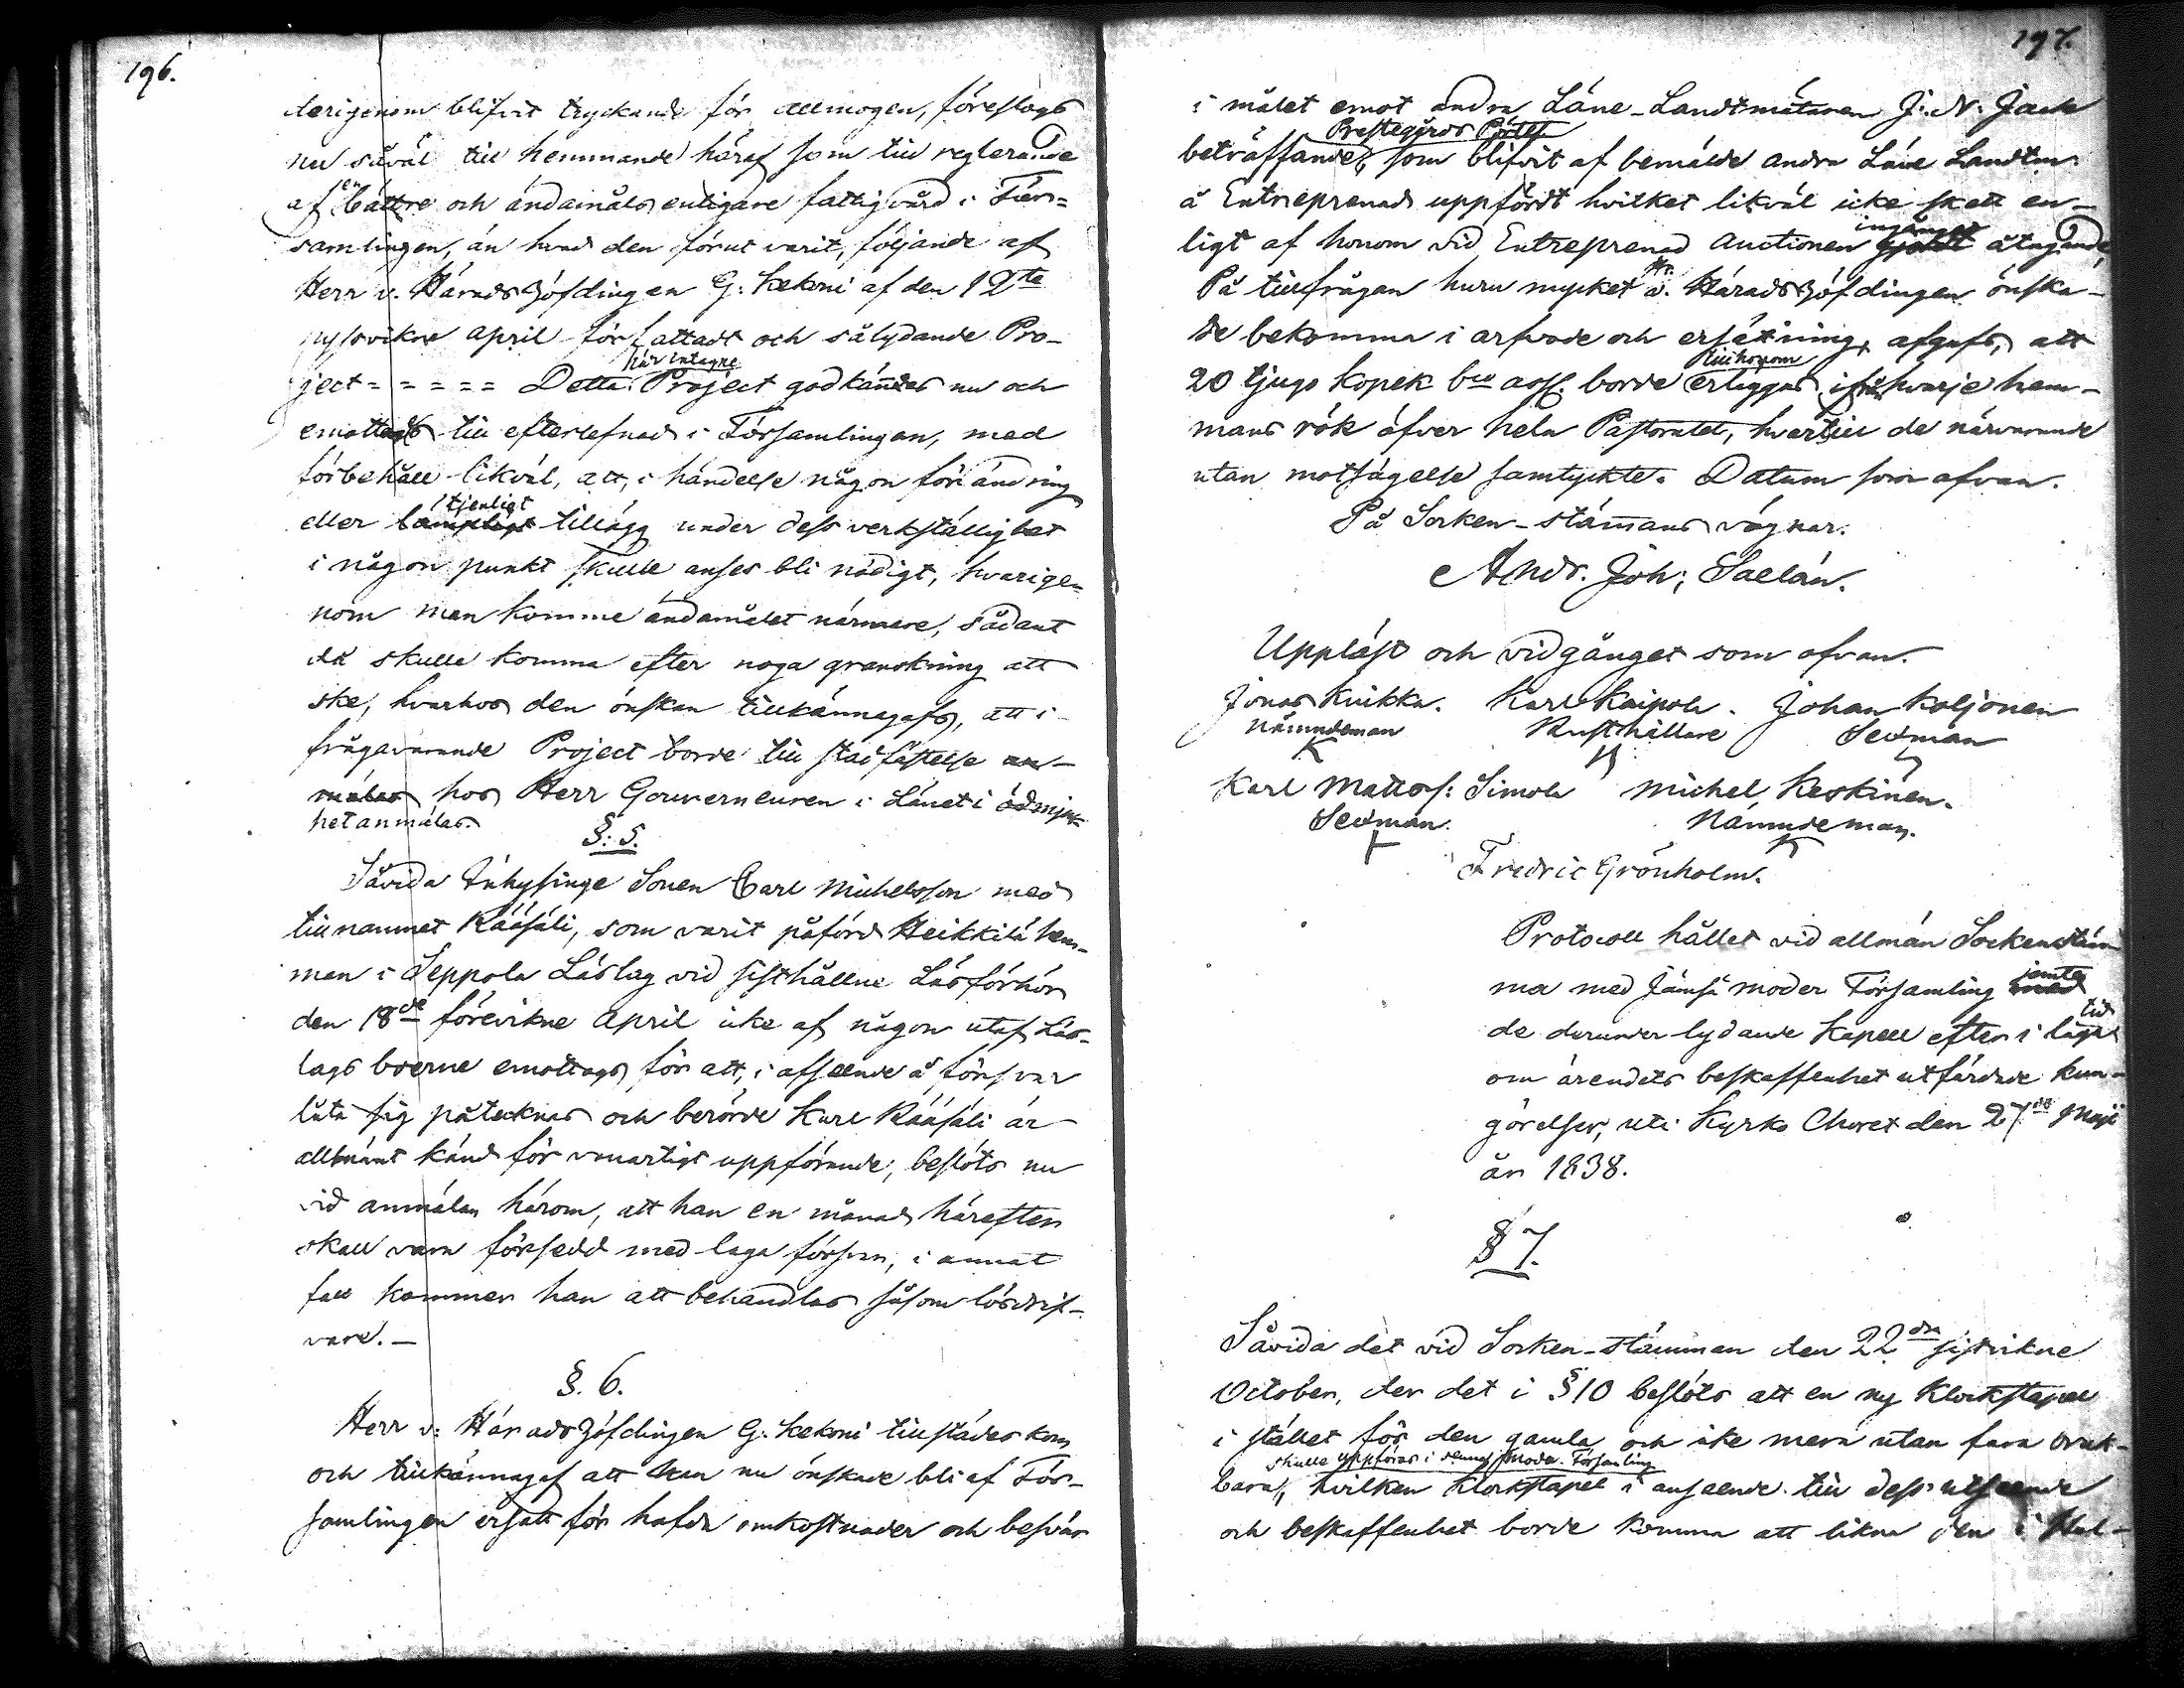 196.
derigenom blifvit tryckande för allmogen, föreslogs
nu såväl till hemmande häraf som till reglerande
af en bättre och ändamåls enligare fattigvård i För=
samlingen, än hvad den förut varit, följande af
Herr v. Häradshöfdingen G: Kekoni af den 12te
nyssvikne April författadt och sålydande Pro-
ject = = = = = Detta här intagne Project godkändes nu och
emottogs till efterlefnad i Församlingen, med
förbehåll likväl, att, i händelse någon förändring
eller lämpligt tjenligt tillägg under dess verkställighet
i någon punkt skulle anses bli nödigt, hvarige=
nom man komme ändamålet närmare, sådant
då skulle komma efter noga granskning att
ske, hvarhos den önskan tillkännagafs, att i
frågavarande Project borde till stadfästelse an-
mälas hos Herr Gouverneuren i Länet i ödmjuk
het anmälas.
§: 5.
Såvida Inhysinge Sonen Carl Michelsson med
tillnamnet Rääsäli, som varit påförd Heikkilä hem-
man i Seppola Läslag vid sisthållne Läsförhör
den 18de förevikne April icke af någon utaf Läs-
lags boerne emottogs för att, i afseende å försvar
låta sig påtecknas och berörde Karl Rääsäli är
allmänt känd för vanartigt uppförande, beslöts nu
vid anmälan härom, att han en månad härefter
skall vara försedd med laga försvar, i annat
fall kommer han att behandlas såsom lösdrif-
vare. -
§. 6.
Herr v: Häradshöfdingen G. Kekoni tillstädes kom
och tillkännagaf att han nu önskade bli af För-
samlingen ersatt för hafda omkostnader och besvär
197.
i målet emot andra Läne-Landtmätaren J: N: Jack
beträffande Prestegårds Pörtet, som blifvit af bemälde andra Läne Landtm:
å Entreprenad uppfördt hvilket likväl icke skett en-
ligt af honom vid Entreprenad Auctionen ingånget åtagande,
På tillfrågan huru mycket Hr v. Häradshöfdingen önska-
de bekomma i arfvode och ersättning, afgafs, att
20 tjugo Kopek bco ass. borde till honom erläggas ifrån hvarje hem-
mans rök öfver hela Pastoratet, hvartill de närvarande
utan motsägelse samtyckte. Datum som ofvan.
På Socken-stämmans vägnar.
Andr. Joh: Saelan.
Uppläst och vidgånget som ofvan.
Jonas Kuikka. Karl Kaipola. Johan Koljonen
Nämndeman Rusthållare Sexman
Karl Mattss: Simola Michel Keskinen.
Sexman. Nämndeman.
Fredric Grönholm.
Protocoll hållet vid allmän Sockenstäm
ma med Jämsä moder Församling med jemte
de derunder lydande Kapell efter i laga tid
om ärendets beskaffenhet utfärdade kun-
görelser, uti Kyrko Choret den 27de Maji
år 1838.
§ 7.
Såvida det vid Socken-stämman den 22dra sistvikne
October, der det i § 10 beslöts att en ny Klockstapel
i stället för den gamla och icke mera utan fara bruk-
bara, skulle uppföras i denna Moder Församling hvilken Klockstapel i anseende till dess utseende
och beskaffenhet borde komma att likna den i